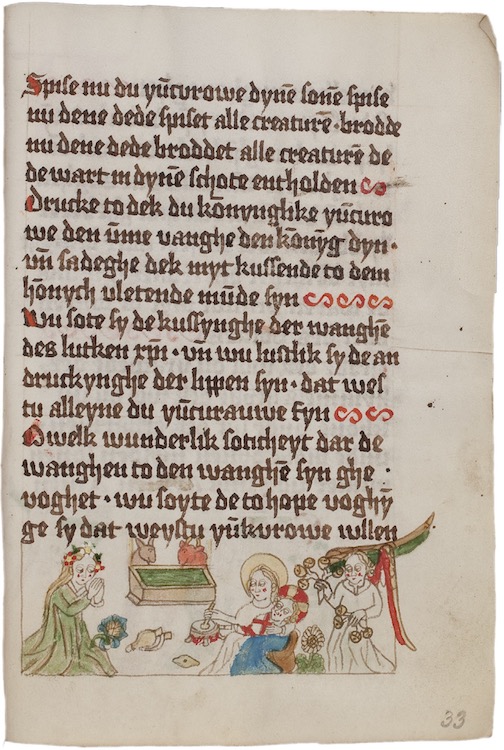 Spise nu du yūcvrowe dynē sonē spise
nu dene dede spiset alle creaturē · brodde
nu dene dede broddet alle creaturē de
de wart in dynē schote entholden
Drucke to dek du kōnynglike yūcuro
we den ūme vanghe den kōnīg dyn ·
vn̄ sadeghe dek myt kussende to dem
hōnych vletende mūde syn
Wu sote sy de kussynghe der wanghē
des lutken xp̄i · vn̄ wu lustlik sy de an
druckynghe der lippen syn · dat wes
tu alleyne du yūcurauwe fyn
O welk wunderlik soticheyt dar de
wanghen to den wanghē syn ghe
voghet · wu soyte de to hope voghȳ
ge sy dat weystu yūkvrowe wllen
33